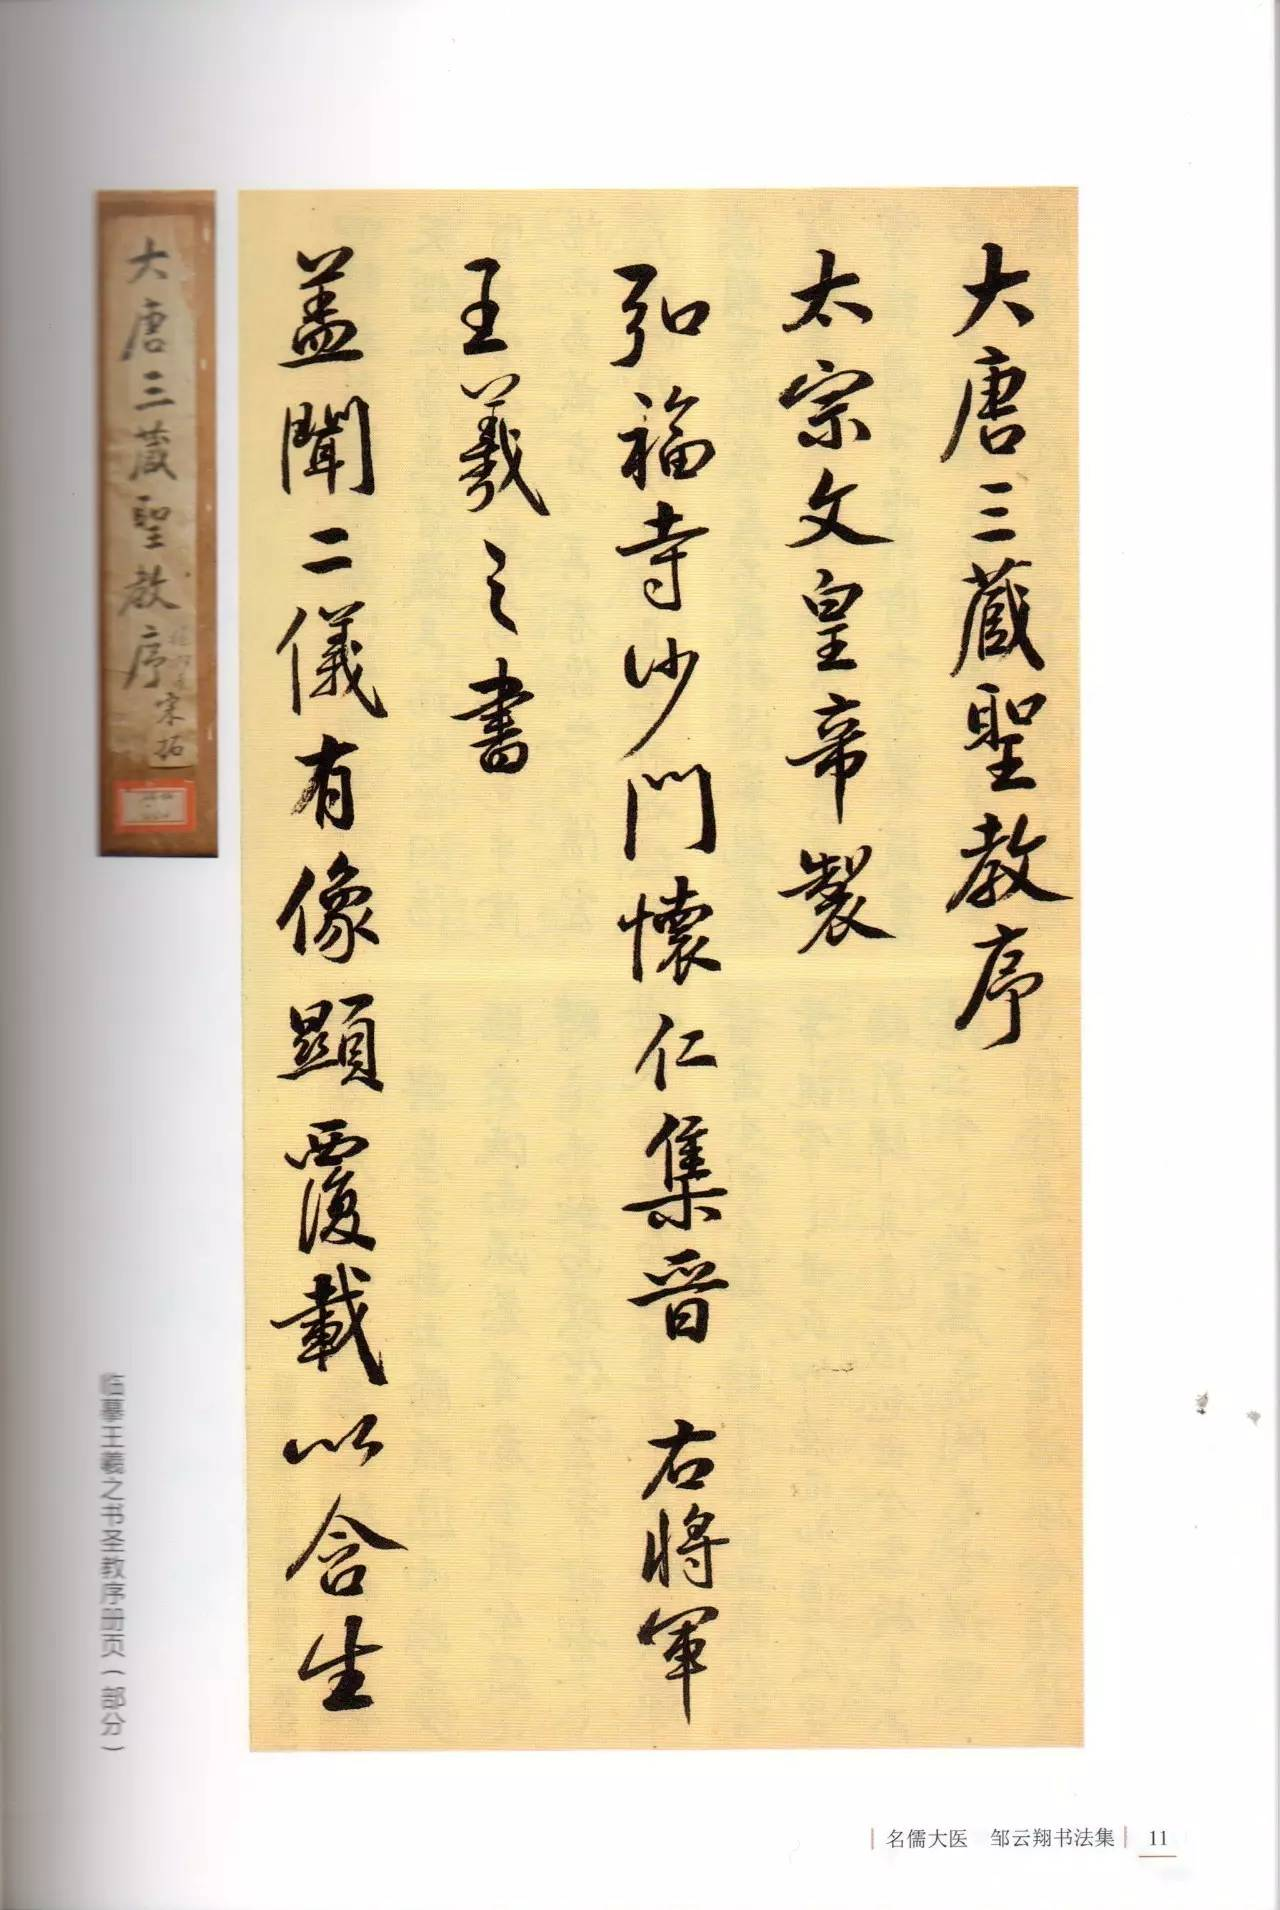 大唐三藏聖教序
太宗文皇帝製
弘福寺沙門懷仁集晉 右將軍
王羲之書
盖聞二儀有像顯覆載以含生
大唐三藏聖教序
宋拓
临摹王羲之书圣教序册页（部分）
名儒大医 邹云翔书法集 11